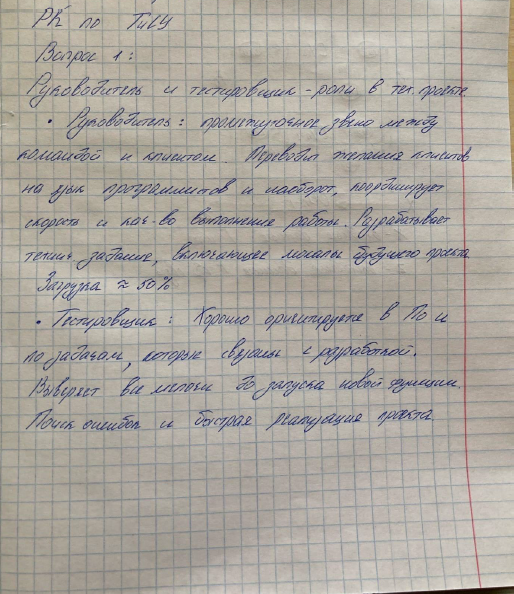 РК по ТиЦ
Вопрос 1:
Руководитель и тестировщик - роли в тех. проекте.
• Руководитель: промежуточное звено между
командой и клиентом. Переводит желания клиентов
на язык программистов и наоборот, координирует
скорость и кач-во выполнение работы. Разрабатывает
технич. задание, включающее мелочи будущего проекта
Загрузка ≈ 50%
• Тестировщик: Хорошо ориентируется в ПО и
по задачам, которые связаны с разработкой.
Выверяет все мелочи до запуска новой функции.
Поиск ошибок и быстрая реализация проекта